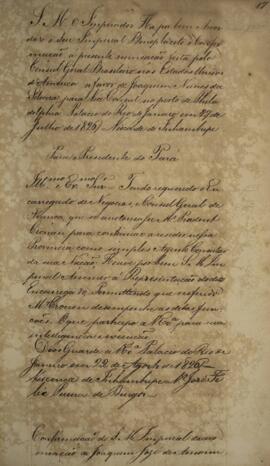 S. M. o Imperador Ha por bem conceder
o seu Imperial Beneplacito e Confir
mação á presente nomeação feita pelo
Consul Geral Brasileiro nos Estados Unidos
d'America a favor de Joaquim Nunes da
Silveira para Vice Consul no porto de Phila
delphia. Palacio do Rio de Janeiro em 27 de
Julho de 1826. Visconde de Inhambupe
Para o Presidente do Pará
Illmo e Exmo Snr. Tendo requerido o En
carregado de Negocios e Consul Geral de
França, que se authorize a Mr.
Crouan para continuar a residir nessa
Provincia como simples Agente Comercial
da sua Nação, Houve por bem S. M. Im
perial Attender á Representação do dito
Encarregado Permittindo que o referido
Mr. Crouan desempenhe as ditas fun
ções. O que participo a V. Exa. para sua
intelligencia e execução.
Deos Guarde a V. Exa. Palacio do Rio de
Janeiro em 22 de Agosto de 1826.
Visconde de Inhambupe. Snr. José Fe
lix Pereira de Burgos.
Confirmação de S. M. Imperial da no
meação de Joaquim José de